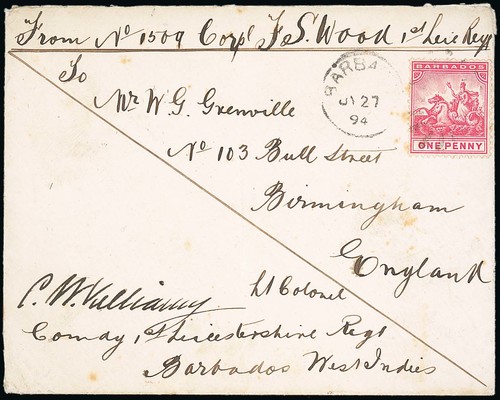 From No 1509 Corpl F. S. Wood 1st Leic Regt
To
Mr W. G. Grenville
No 103 Bull Street
Birmingham
England
BARBA
JY 27
94
BARBADOS
ONE PENNY
C. Williamy
Lt Colonel
Comdg 1st Leicestershire Regt
Barbados West Indies